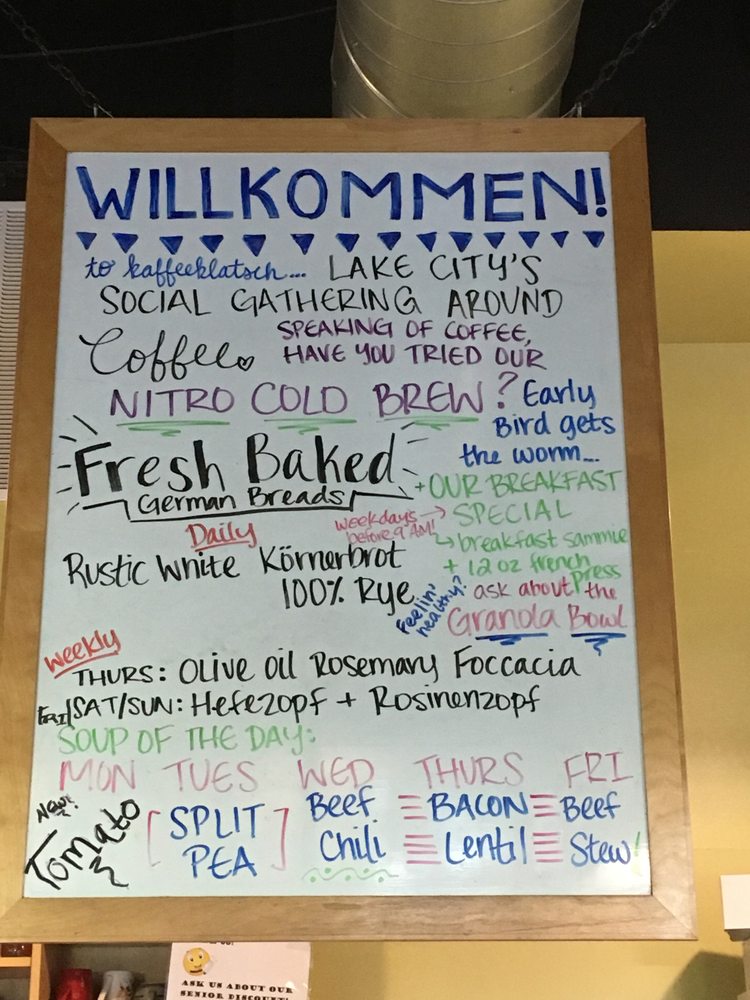 WILLKOMMEN!
to kaffeeklatsch... LAKE CITY'S
SOCIAL GATHERING AROUND
Coffee
SPEAKING OF COFFEE,
HAVE YOU TRIED OUR
NITRO COLD BREW?
Early
Bird gets
the worm...
+ OUR BREAKFAST
SPECIAL
weekdays
before 9 AM!
breakfast sammie
+ 12 oz french
press
Fresh Baked
German Breads
Daily
Rustic White Körnerbrot
100% Rye
Feelin'
healthy?
ask about the
Granola Bowl
Weekly
THURS: Olive oil Rosemary Foccacia
FRI/SAT/SUN: Hefezopf + Rosinenzopf
SOUP OF THE DAY:
MON TUES WED THURS FRI
New!
Tomato
SPLIT
PEA
Beef
Chili
BACON
Lentil
Beef
Stew!
ASK US ABOUT OUR
SENIOR DISCOUNT!